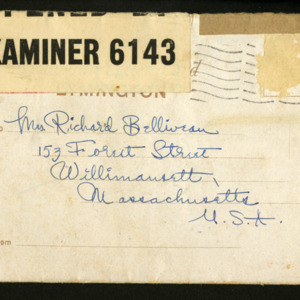 OPENED BY
EXAMINER 6143
LYMINGTON
Mrs Richard Belliveau
153 Forest Street
Willimansett,
Massachusetts
U.S.A.